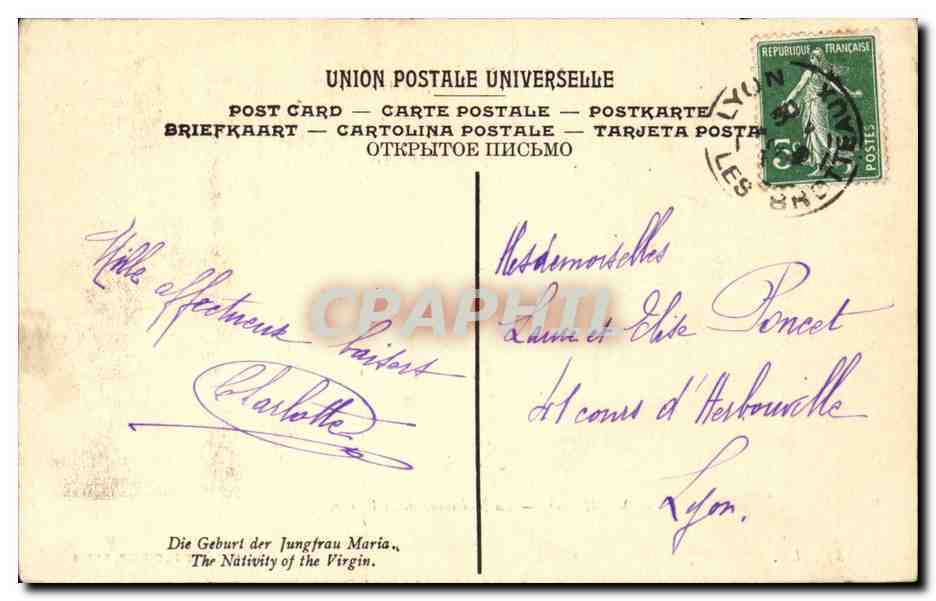 UNION POSTALE UNIVERSELLE
POST CARD — CARTE POSTALE — POSTKARTE
BRIEFKAART — CARTOLINA POSTALE — TARJETA POSTA
ОТКРЫТОЕ ПИСЬМО
REPUBLIQUE FRANÇAISE
POSTES
5c
LYON
LES BROTTEAUX
Mille affectueux baisers
Charlotte
Mesdemoiselles
Laure et Elise Poncet
41 cours d'Herbouville
Lyon.
CPAPHIL
Die Geburt der Jungfrau Maria.
The Nativity of the Virgin.